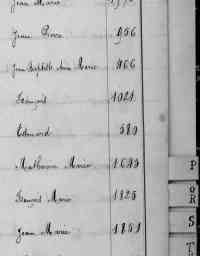 Jean Marie
Jean Pierre 956
Jean Baptiste Anne Marie 966
François 1021
Edmond 589
Mathurin Marie
François Marie 1825
Jean Marie 1851
P
QR
S
T